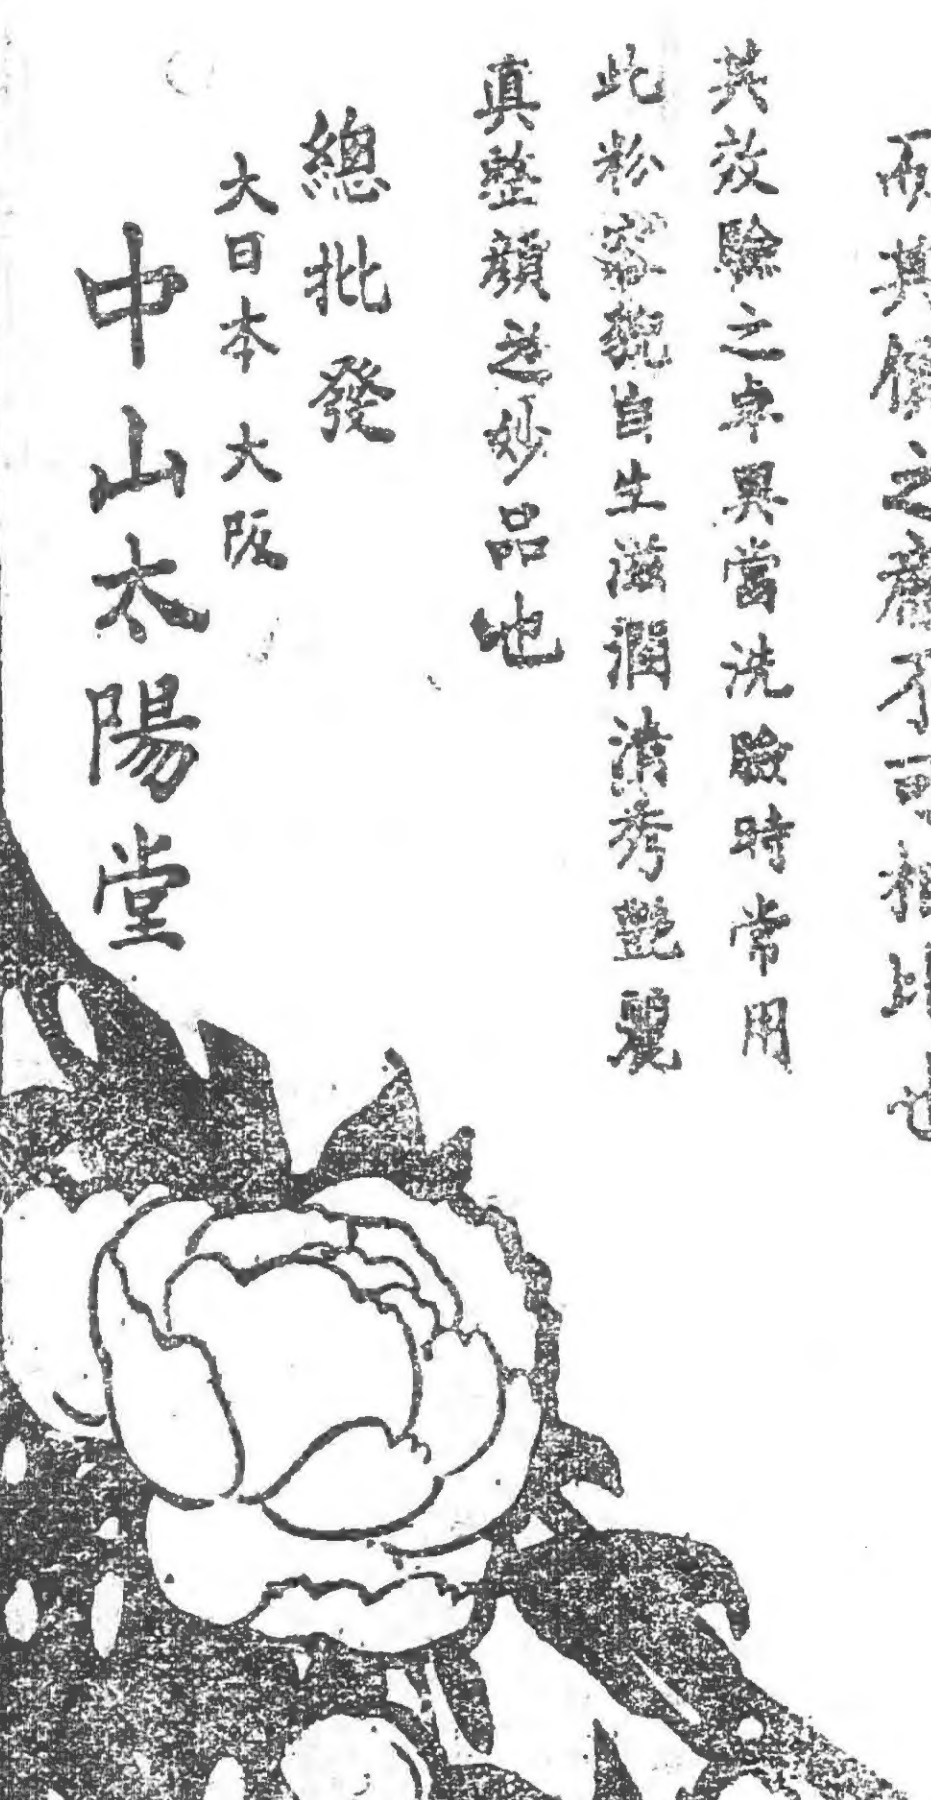 而其價之廉不可相比也
其效驗之卓異當洗臉時常用
此粉容貌自生滋潤淸秀艷麗
真整顔之妙品也
總批發
大日本 大阪
中山太陽堂